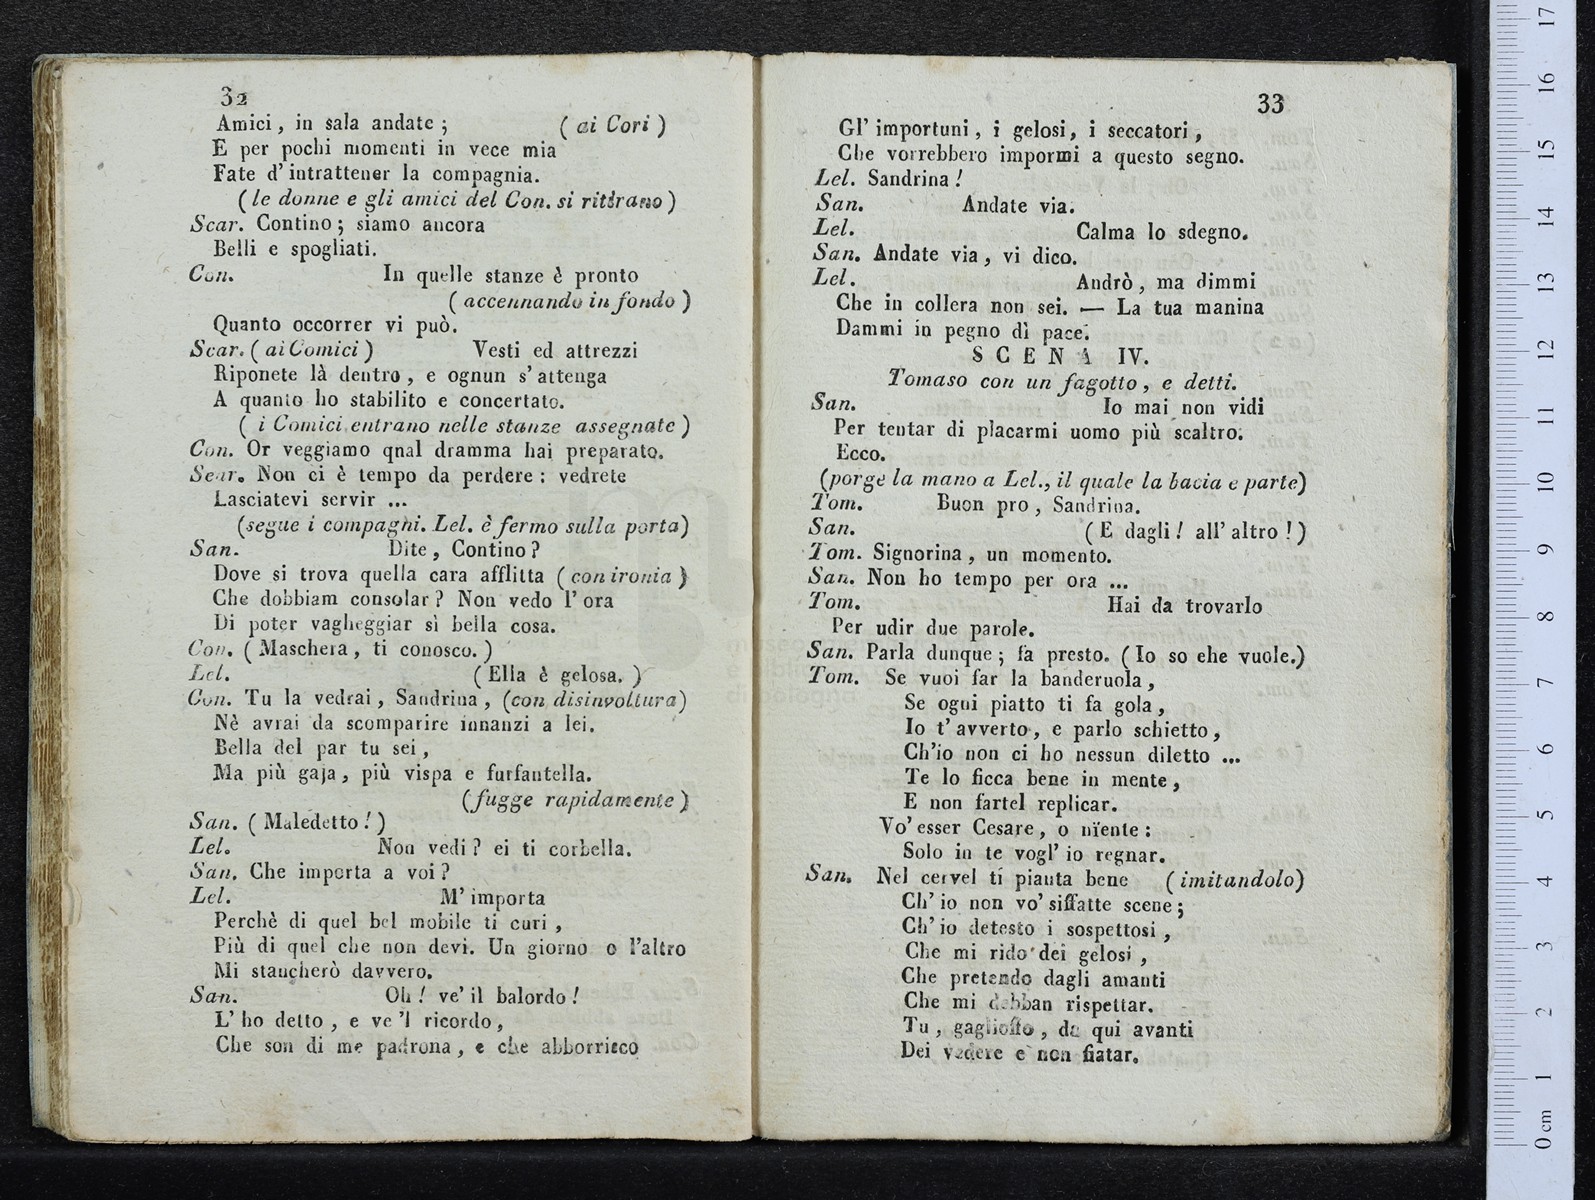 32
Amici, in sala andate; (ai Cori)
E per pochi momenti in vece mia
Fate d'intrattener la compagnia.
(le donne e gli amici del Con. si ritirano)
Scar. Contino; siamo ancora
Belli e spogliati.
Con. In quelle stanze è pronto
(accennando in fondo)
Quanto occorrer vi può.
Scar. (ai Comici) Vesti ed attrezzi
Riponete là dentro, e ognun s'attenga
A quanto ho stabilito e concertato.
(i Comici entrano nelle stanze assegnate)
Con. Or veggiamo qnal dramma hai preparato.
Scar. Non ci è tempo da perdere: vedrete
Lasciatevi servir ...
(segue i compagni. Lel. è fermo sulla porta)
San. Dite, Contino?
Dove si trova quella cara afflitta (con ironia)
Che dobbiam consolar? Non vedo l'ora
Di poter vagheggiar sì bella cosa.
Con. (Maschera, ti conosco.)
Lel. (Ella è gelosa.)
Con. Tu la vedrai, Sandrina, (con disinvoltura)
Nè avrai da scomparire innanzi a lei.
Bella del par tu sei,
Ma più gaja, più vispa e furfantella.
(fugge rapidamente)
San. (Maledetto!)
Lel. Non vedi? ei ti corbella.
San. Che importa a voi?
Lel. M'importa
Perchè di quel bel mobile ti curi,
Più di quel che non devi. Un giorno o l'altro
Mi stancherò davvero.
San. Oh! ve' il balordo!
L'ho detto, e ve 'l ricordo,
Che son di me padrona, e che abborrisco
33
Gl'importuni, i gelosi, i seccatori,
Che vorrebbero impormi a questo segno.
Lel. Sandrina!
San. Andate via.
Lel. Calma lo sdegno.
San. Andate via, vi dico.
Lel. Andrò, ma dimmi
Che in collera non sei. — La tua manina
Dammi in pegno dì pace.
SCENA IV.
Tomaso con un fagotto, e detti.
San. Io mai non vidi
Per tentar di placarmi uomo più scaltro.
Ecco.
(porge la mano a Lel., il quale la bacia e parte)
Tom. Buon pro, Sandrina.
San. (E dagli! all'altro!)
Tom. Signorina, un momento.
San. Non ho tempo per ora ...
Tom. Hai da trovarlo
Per udir due parole.
San. Parla dunque; fa presto. (Io so ehe vuole.)
Tom. Se vuoi far la banderuola,
Se ogni piatto ti fa gola,
Io t'avverto, e parlo schietto,
Ch'io non ci ho nessun diletto ...
Te lo ficca bene in mente,
E non fartel replicar.
Vo' esser Cesare, o nïente:
Solo in te vogl'io regnar.
San. Nel cervel ti pianta bene (imitandolo)
Ch'io non vo' siffatte scene;
Ch'io detesto i sospettosi,
Che mi rido dei gelosi,
Che pretendo dagli amanti
Che mi debban rispettar.
Tu, gaglioffo, da qui avanti
Dei vedere e non fiatar.
17
16
15
14
13
12
11
10
9
8
7
6
5
4
3
2
1
0 cm